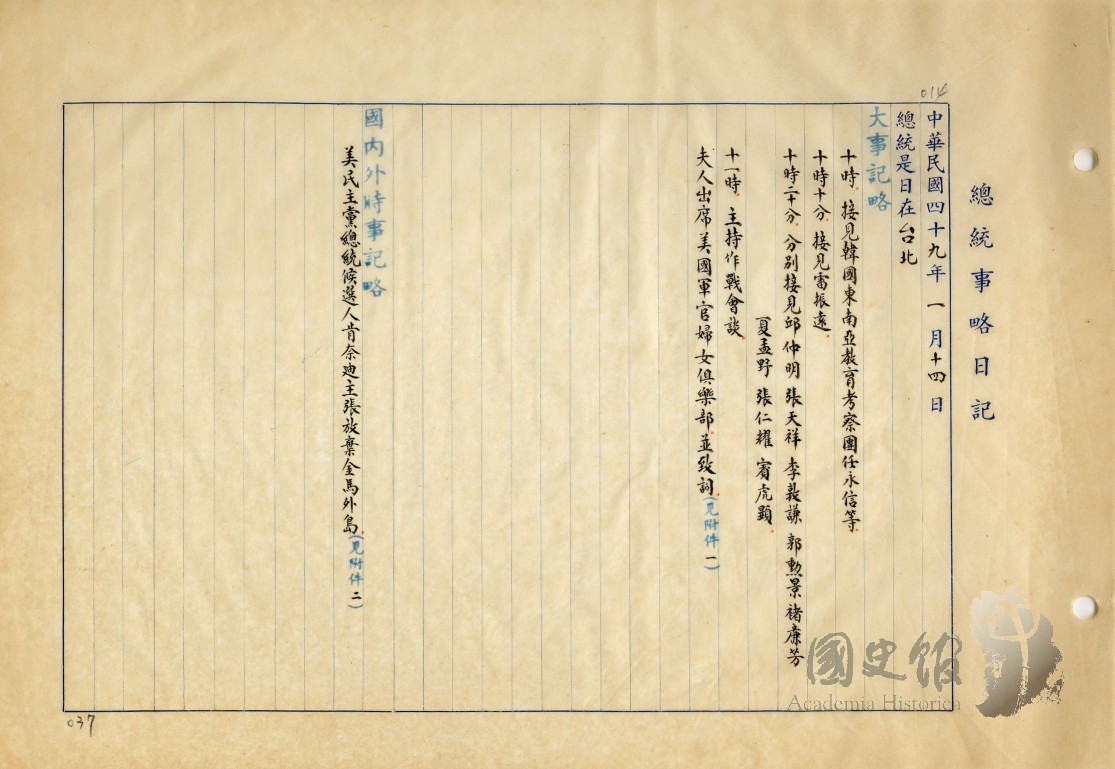 總統事略日記
014
中華民國四十九年一月十四日
總統是日在台北
大事記略
十時，接見韓國東南亞教育考察團任永信等。
十時十分，接見雷振遠。
十時二十分，分別接見邱仲明 張天祥 李敦謙 郭勲景 褚廉芳
夏孟野 張仁耀 甯虎顕。
十一時，主持作戰會談。
夫人出席美國軍官婦女俱樂部，並致詞。(見附件一)
國內外時事記略
美民主黨總統候選人肯奈迪主張放棄金馬外島。(見附件二)
037
國史館
Academia Historica